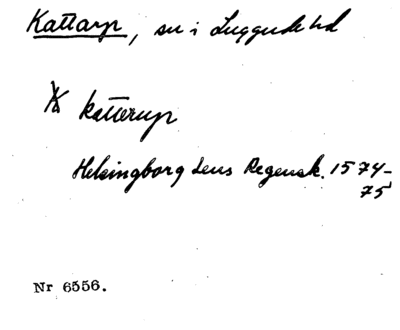 Kattarp, sn i Luggude hd
Katterup
Helsingborg Lens Regensk. 1574-
75
Nr 6556.